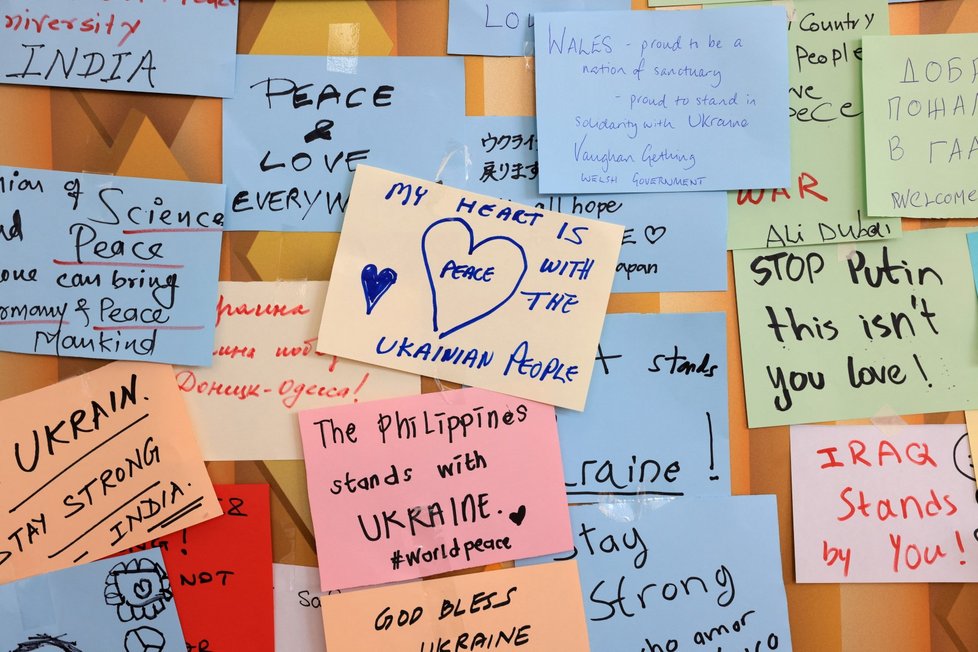 niversity
INDIA
PEACE
&
LOVE
WALES - proud to be a
nation of sanctuary
- proud to stand in
solidarity with Ukraine
Vaughan Gething
WELSH GOVERNMENT
Country
People
WAR
Ali Dubai
ДОБР
ПОЖА
В ГА
WELCOME
ウクライ
戻ります
all hope
apan
nion of Science
Peace
one can bring
rmony & Peace
Mankind
MY HEART IS
WITH
THE
PEACE
UKAINIAN PEOPLE
STOP Putin
this isn't
you love!
раина
Доницк-Одесса!
stands
raine!
UKRAIN.
STAY STRONG
- INDIA.
The Philippines
stands with
UKRAINE.
#Worldpeace
IRAQ
Stands
by You!
NOT
Stay
Strong
GOD BLESS
UKRAINE